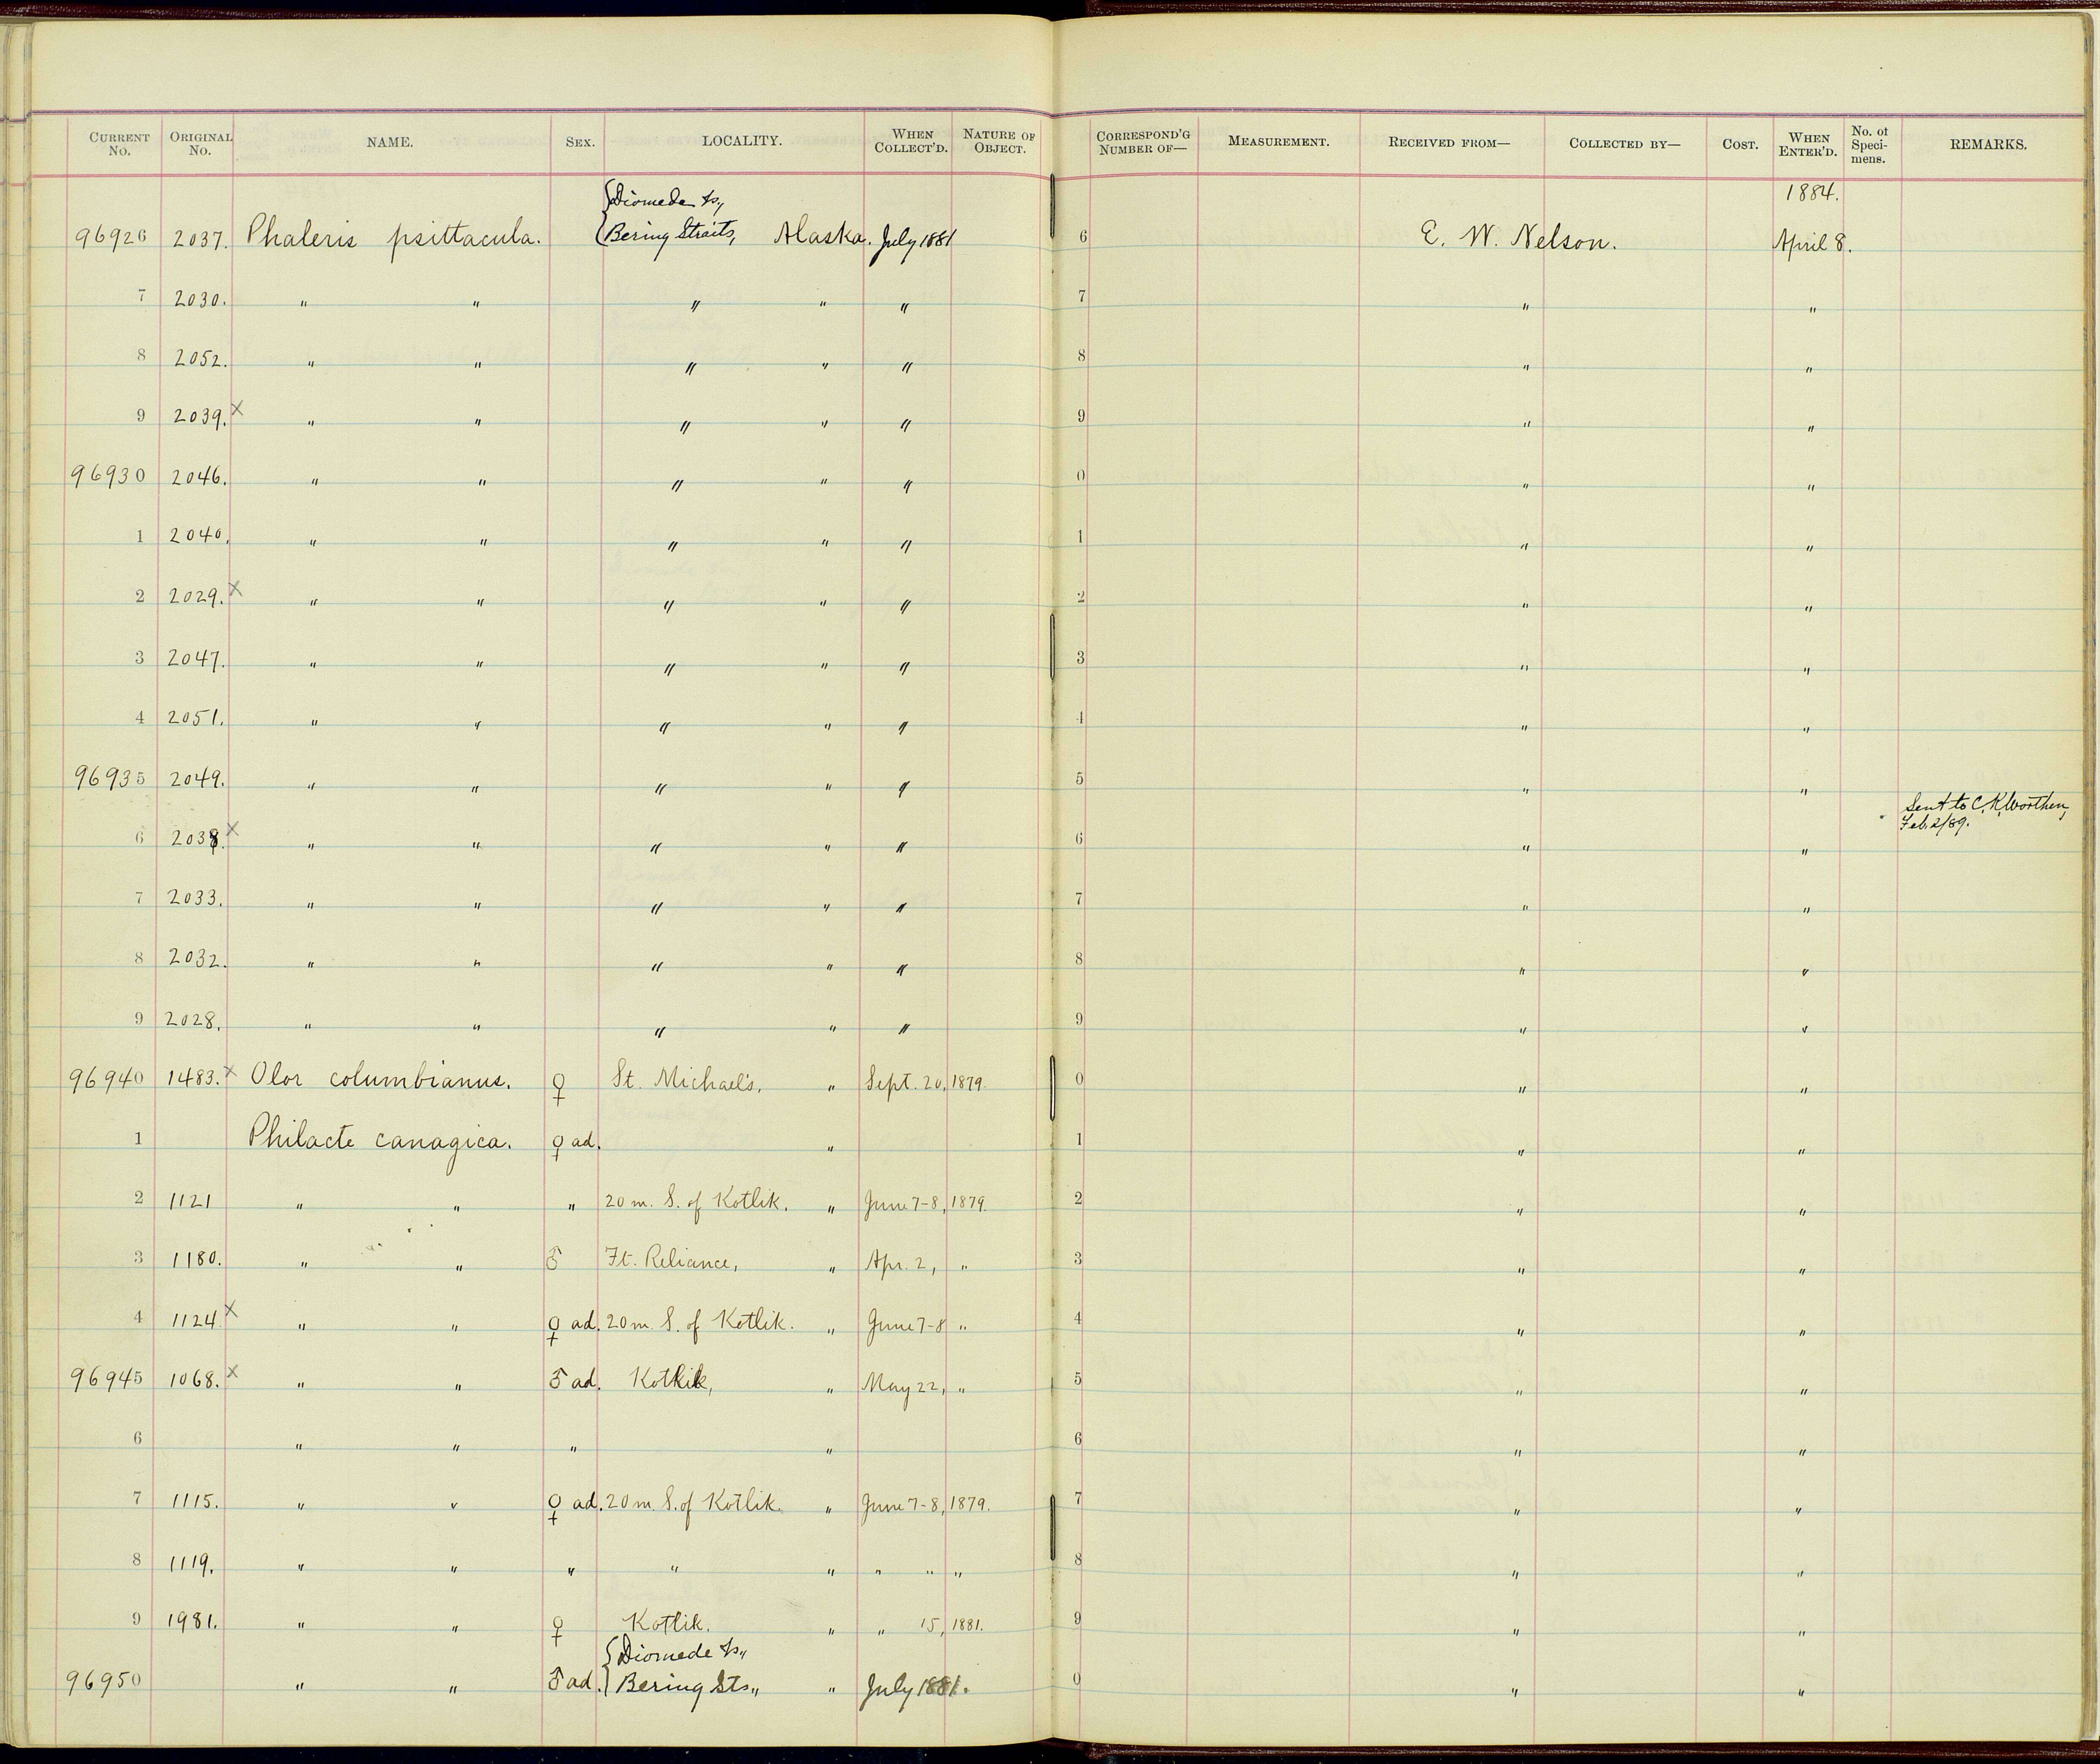 CURRENT No. ORIGINAL No. NAME. SEX. LOCALITY. WHEN COLLECT'D. NATURE OF OBJECT. CORRESPOND'G NUMBER OF— MEASUREMENT. RECEIVED FROM— COLLECTED BY— COST. WHEN ENTER'D. No. of Speci-mens. REMARKS.
{Diomede Is., 1884.
96926 2037. Phaleris psittacula. {Bering Straits, Alaska. July 1881 6 E. W. Nelson. April 8.
7 2030. " " " " " 7 " "
8 2052. " " " " " 8 " "
9 2039. x " " " " " 9 " "
96930 2046. " " " " " 0 " "
1 2040. " " " " " 1 " "
2 2029. x " " " " " 2 " "
3 2047. " " " " " 3 " "
4 2051. " " " " " 4 " "
96935 2049. " " " " " 5 " "
Sent to C. K. Worthen,
Feb. 2/89.
6 2038. x " " " " " 6 " "
7 2033. " " " " " 7 " "
8 2032. " " " " " 8 " "
9 2028. " " " " " 9 " "
96940 1483. x Olor columbianus. ♀ St. Michael's, " Sept. 20, 1879. 0 " "
1 Philacte canagica. ♀ ad. " 1 " "
2 1121 " " " 20 m. S. of Kotlik. " June 7-8, 1879. 2 " "
3 1180. " " ♂ Ft. Reliance, " Apr. 2, " 3 " "
4 1124. x " " ♀ ad. 20 m. S. of Kotlik. " June 7-8 " 4 " "
96945 1068. x " " ♂ ad. Kotlik, " May 22, " 5 " "
6 " " " " 6 " "
7 1115. " " ♀ ad. 20 m. S. of Kotlik. " June 7-8, 1879. 7 " "
8 1119. " " " " " " " " 8 " "
9 1981. " " ♀ Kotlik. " " 15, 1881. 9 " "
{Diomede Is.,
96950 " " ♂ ad. {Bering Sts., " July 1881. 0 " "